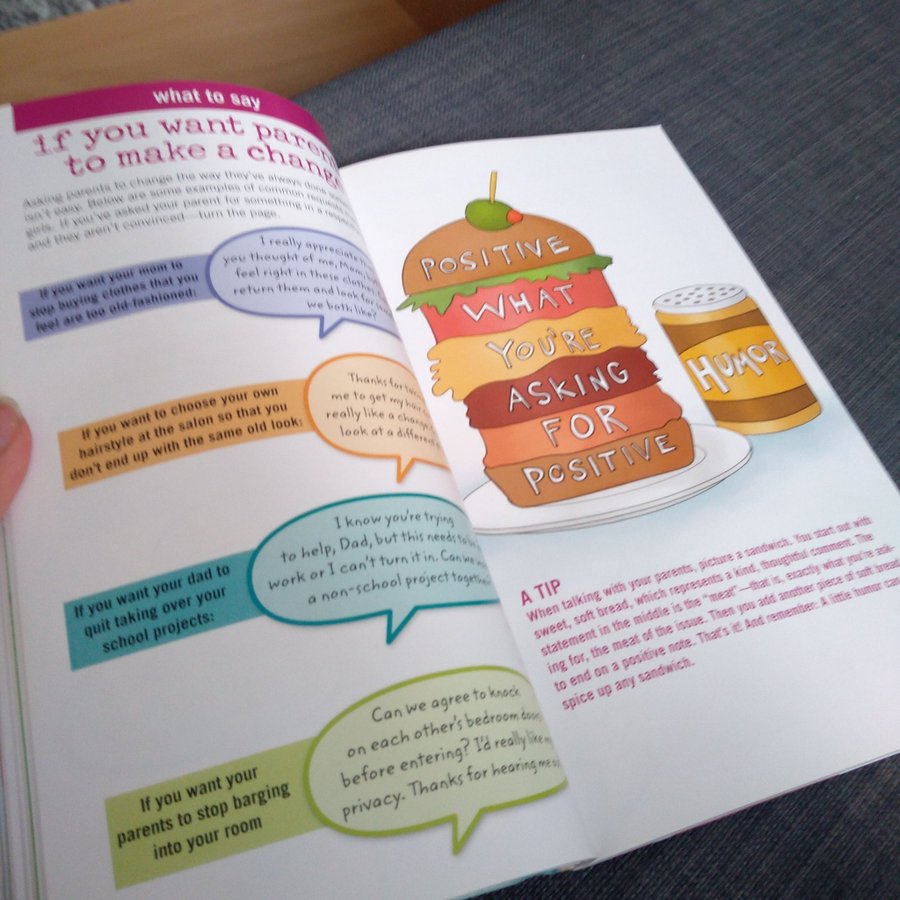 what to say
if you want
to make a
Asking parents to change the way they've always done
isn't easy. Below are some examples of common requests
girls. If you've asked your parent for something in a
and they aren't convinced—turn the page.
If you want your mom to
stop buying clothes that you
feel are too old-fashioned:
I really appreciate
you thought of me, Mom,
feel right in these clothes.
return them and look for
we both like?
If you want to choose your own
hairstyle at the salon so that you
don't end up with the same old look:
Thanks for
me to get my
really like a change.
look at a different
If you want your dad to
quit taking over your
school projects:
I know you're trying
to help, Dad, but this needs to
work or I can't turn it in. Can we
a non-school project together
If you want your
parents to stop barging
into your room
Can we agree to knock
on each other's bedroom
before entering? I'd really like
privacy. Thanks for hearing me
POSITIVE
WHAT
YOU'RE
ASKING
FOR
POSITIVE
HUMOR
A TIP
When talking with your parents, picture a sandwich. You start out with
sweet, soft bread, which represents a kind, thoughtful comment. The
statement in the middle is the "meat"—that is, exactly what you're ask-
ing for, the meat of the issue. Then you add another piece of soft bread
to end on a positive note. That's it! And remember: A little humor can
spice up any sandwich.